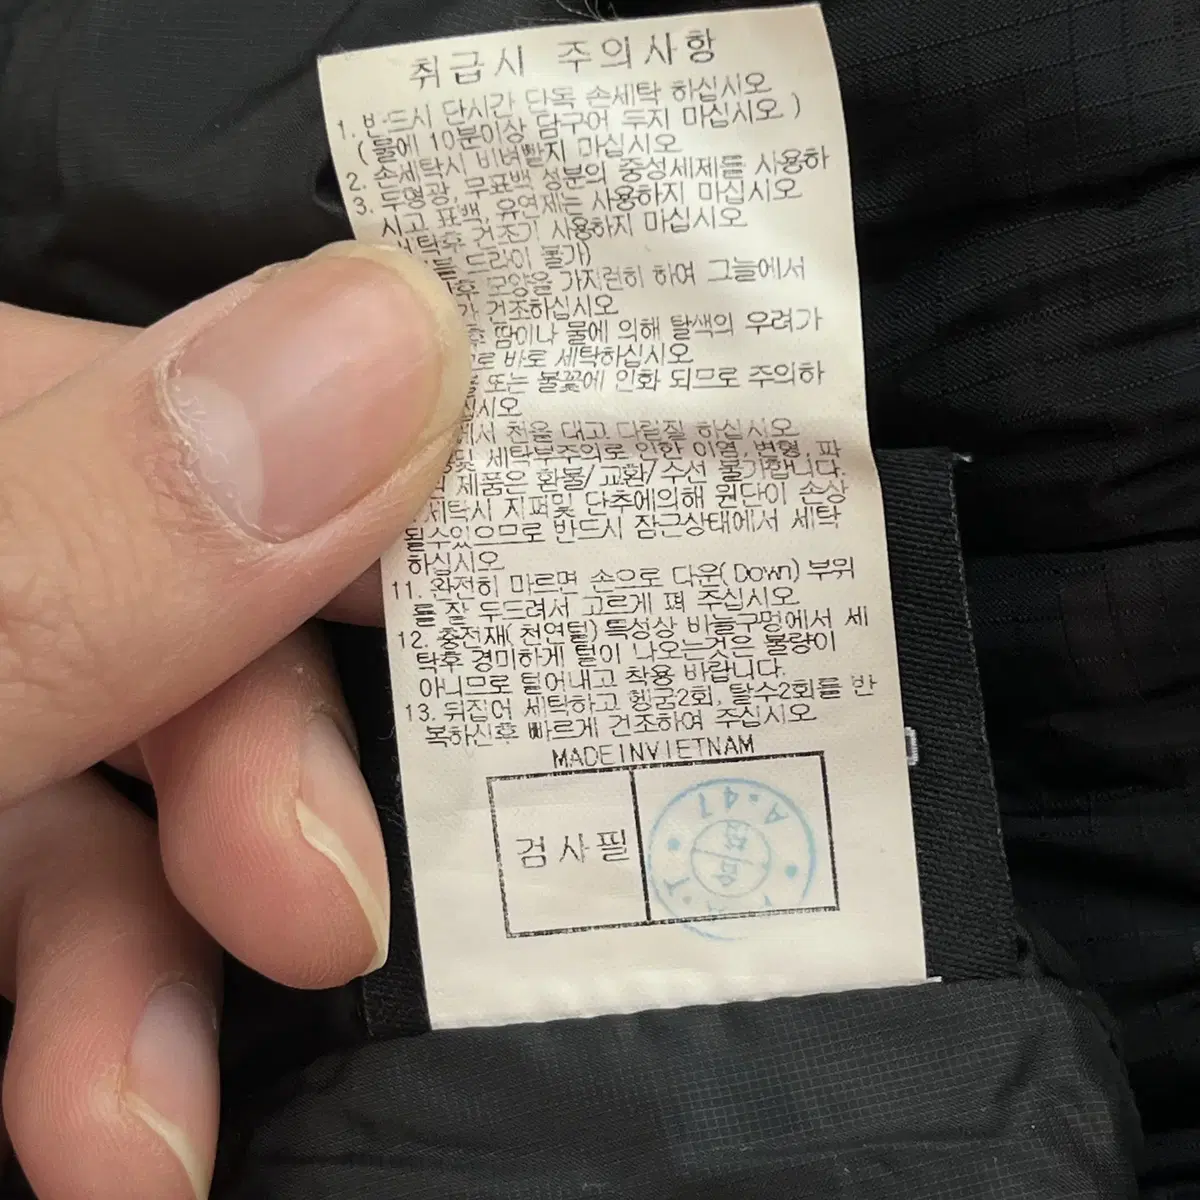 취급시 주의사항
1. 반드시 단시간 단독 손세탁 하십시오
(물에 10분이상 담구어 두지 마십시오)
2. 손세탁시 비벼빨지 마십시오
3. 무형광, 무표백 성분의 중성세제를 사용하
시고 표백, 유연제는 사용하지 마십시오
세탁후 건조기 사용하지 마십시오
드라이 불가)
모양을 가지런히 하여 그늘에서
건조하십시오
땀이나 물에 의해 탈색의 우려가
바로 세탁하십시오
또는 불꽃에 인화 되므로 주의하
십시오
천을 대고 다림질 하십시오
및 세탁부주의로 인한 이염, 변형, 파
제품은 환불/교환/수선 불가합니다.
세탁시 지퍼및 단추에의해 원단이 손상
될수있으므로 반드시 잠근상태에서 세탁
하십시오
11. 완전히 마르면 손으로 다운(Down) 부위
를 잘 두드려서 고르게 펴 주십시오
12. 충전재(천연털) 특성상 바늘구멍에서 세
탁후 경미하게 털이 나오는것은 불량이
아니므로 털어내고 착용 바랍니다.
13. 뒤집어 세탁하고 헹굼2회, 탈수2회를 반
복하신후 빠르게 건조하여 주십시오
MADE IN VIETNAM
검사필
A·41